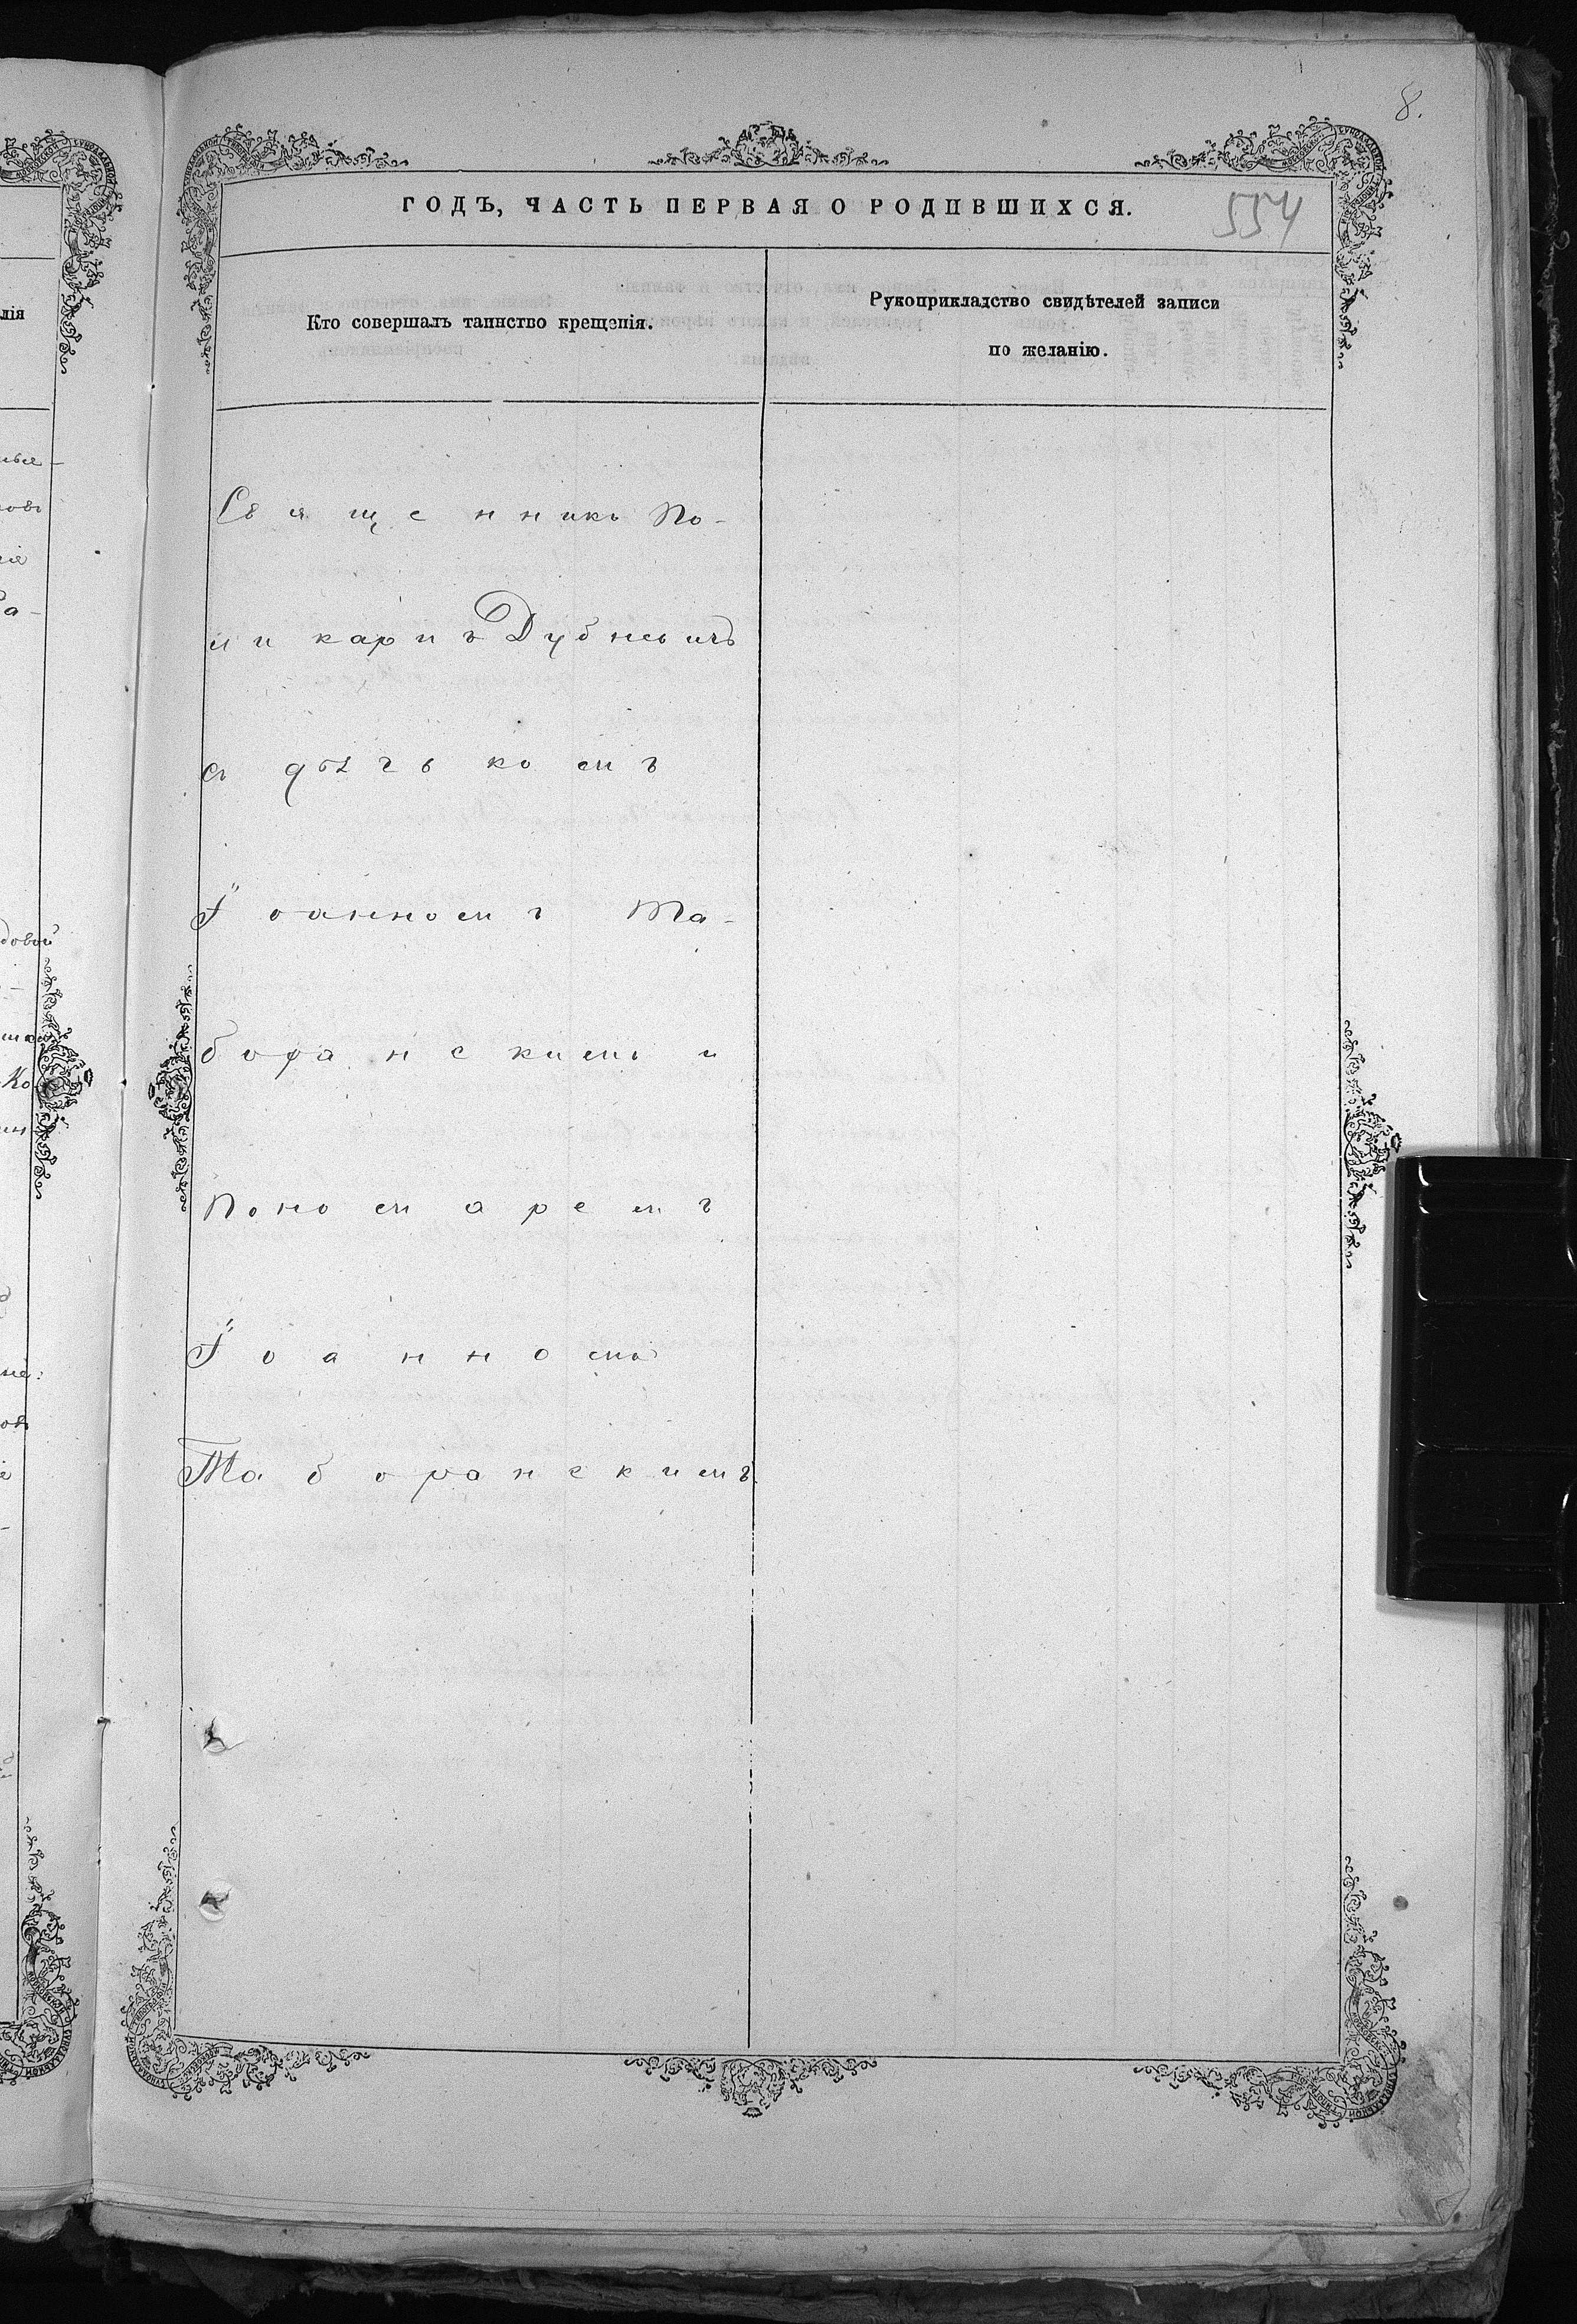 8.
ГОДЪ, ЧАСТЬ ПЕРВАЯ О РОДИВШИХСЯ.
554
Кто совершалъ таинство крещенія.
Рукоприкладство свидѣтелей записи
по желанію.
Священникъ По-
ликарпъ Дубневичъ
съ дьячкомъ
Іоанномъ Та-
боранскимъ и
Пономаремъ
Іоанномъ
Таборанскимъ
лія
довой
Ко